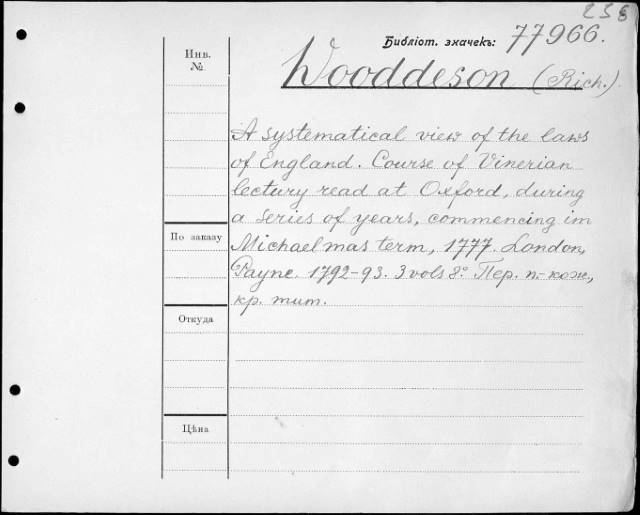 238
Библіот. значекъ: 77966.
Инв. №
Wooddeson (Rich.)
A systematical view of the laws
of England. Course of Vinerian
lectury read at Oxford, during
a series of years, commencing im
По заказу
Michaelmas term, 1777. London,
Payne. 1792-93. 3 vols 8º Пер. п.-кож.,
кр. тит.
Откуда
Цѣна